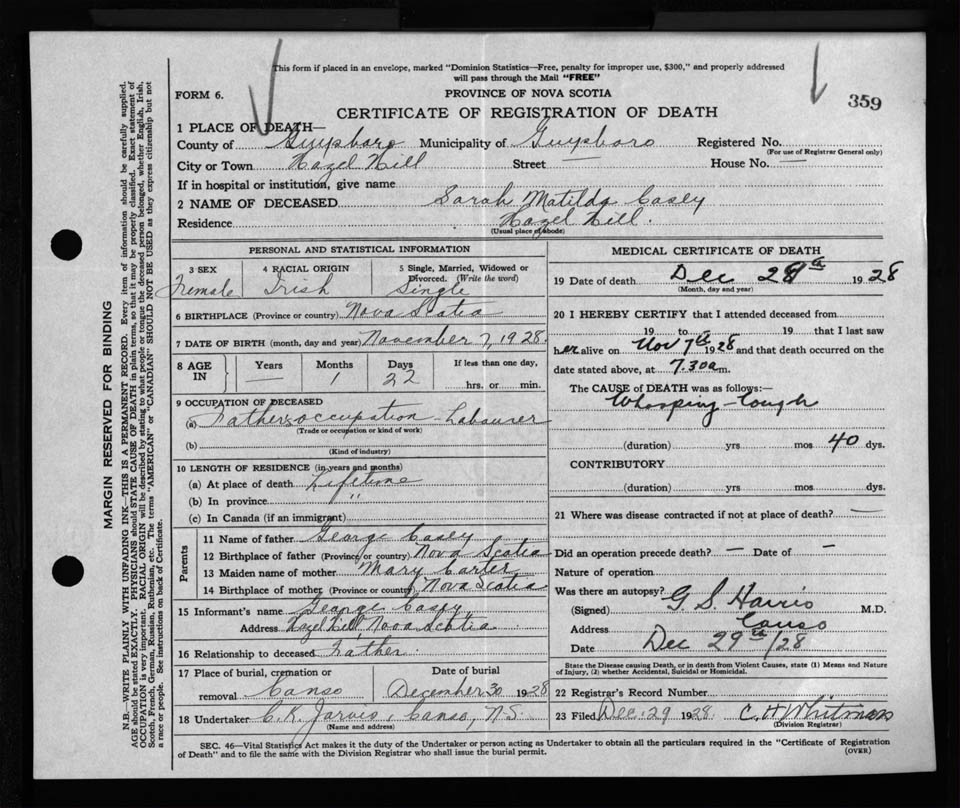 This form if placed in an envelope, marked "Dominion Statistics—Free, penalty for improper use, $300," and properly addressed
will pass through the Mail "FREE"
FORM 6.
PROVINCE OF NOVA SCOTIA
359
CERTIFICATE OF REGISTRATION OF DEATH
1 PLACE OF DEATH—
County of Guysboro Municipality of Guysboro Registered No.
(For use of Registrar General only)
City or Town Hazel Hill Street — House No. —
If in hospital or institution, give name
2 NAME OF DECEASED Sarah Matilda Casey
Residence Hazel Hill.
(Usual place of abode)
PERSONAL AND STATISTICAL INFORMATION
3 SEX 4 RACIAL ORIGIN 5 Single, Married, Widowed or
Divorced. (Write the word)
Female Irish Single
6 BIRTHPLACE (Province or country) Nova Scotia
7 DATE OF BIRTH (month, day and year) November 7, 1928.
8 AGE IN Years Months Days If less than one day,
— 1 22 hrs. or min.
9 OCCUPATION OF DECEASED
(a) Fathers occupation - Labourer
(Trade or occupation or kind of work)
(b)
(Kind of industry)
10 LENGTH OF RESIDENCE (in years and months)
(a) At place of death Lifetime
(b) In province "
(c) In Canada (if an immigrant)
Parents
11 Name of father George Casey
12 Birthplace of father (Province or country) Nova Scotia
13 Maiden name of mother Mary Carter
14 Birthplace of mother (Province or country) Nova Scotia
15 Informant's name George Casey,
Address Hazel Hill, Nova Scotia
16 Relationship to deceased Father.
17 Place of burial, cremation or Date of burial
removal Canso December 30 1928
18 Undertaker C. K. Jarvis, Canso, N.S.
(Name and address)
MEDICAL CERTIFICATE OF DEATH
19 Date of death Dec 28th 1928
(Month, day and year)
20 I HEREBY CERTIFY that I attended deceased from
19 to 19 that I last saw
her alive on Nov 7th 1928 and that death occurred on the
date stated above, at 7.30 a m.
The CAUSE of DEATH was as follows:—
Whooping-Cough
(duration) yrs mos 40 dys.
CONTRIBUTORY
(duration) yrs mos dys.
21 Where was disease contracted if not at place of death? —
Did an operation precede death? — Date of —
Nature of operation
Was there an autopsy?
(Signed) G. S. Harris M.D.
Address Canso
Date Dec 29th /28
State the Disease causing Death, or in death from Violent Causes, state (1) Means and Nature
of Injury, (2) whether Accidental, Suicidal or Homicidal.
22 Registrar's Record Number
23 Filed Dec. 29 1928. C. H. Whitman
(Division Registrar)
SEC. 46—Vital Statistics Act makes it the duty of the Undertaker or person acting as Undertaker to obtain all the particulars required in the "Certificate of Registration
of Death" and to file the same with the Division Registrar who shall issue the burial permit.
(OVER)
MARGIN RESERVED FOR BINDING
N.B.—WRITE PLAINLY WITH UNFADING INK—THIS IS A PERMANENT RECORD. Every item of information should be carefully supplied.
AGE should be stated EXACTLY. PHYSICIANS should STATE CAUSE OF DEATH in plain terms, so that it may be properly classified. Exact statement of
OCCUPATION is very important. RACIAL ORIGIN will be described by stating to what people or tongue the deceased person belonged, whether English, Irish,
Scotch, French, German, Russian, Ruthenian, etc. The terms "AMERICAN" or "CANADIAN" SHOULD NOT BE USED as they express citizenship but not
a race or people. See instructions on back of Certificate.